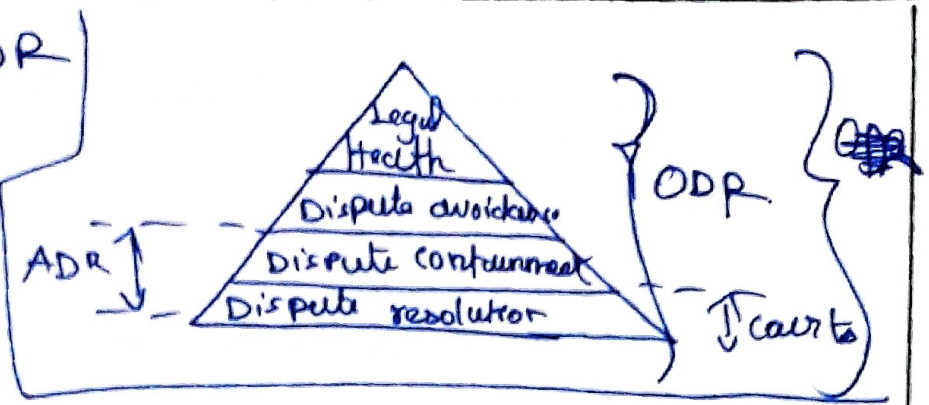 DR
Legal
Health
Dispute avoidance
ODR
ADR
Dispute containment
Dispute resolution
courts